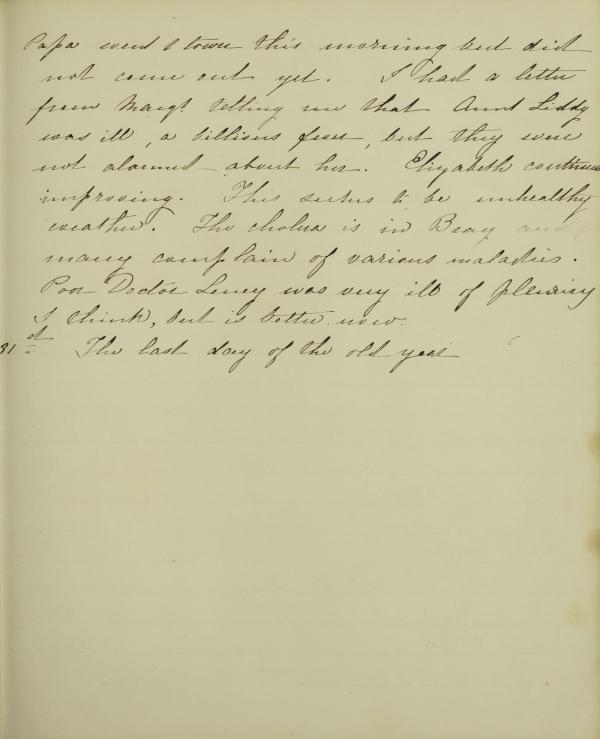 Papa went to town this morning but did
not come out yet. I had a letter
from Margt. telling me that Aunt Liddy
was ill, a billious fever, but they were
not alarmed about her. Elizabeth continues
improving. This seems to be unhealthy
weather. The cholera is in Bray and
many complain of various maladies.
Poor Doctor was very ill of pleurisy
I think, but is better now.
31st The last day of the old year